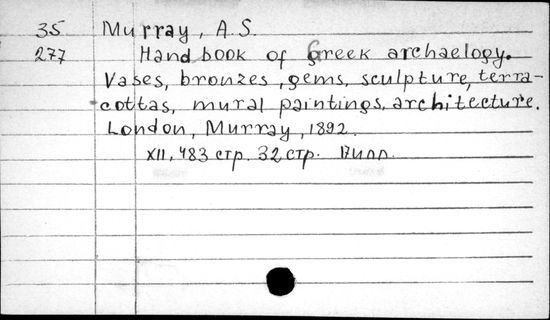 35 Murray, A.S.
277 Handbook of Greek archaelogy.
Vases, bronzes, gems, sculpture, terra-
cottas, mural paintings, architecture.
London, Murray, 1892.
XII, 483 стр. 32 стр.